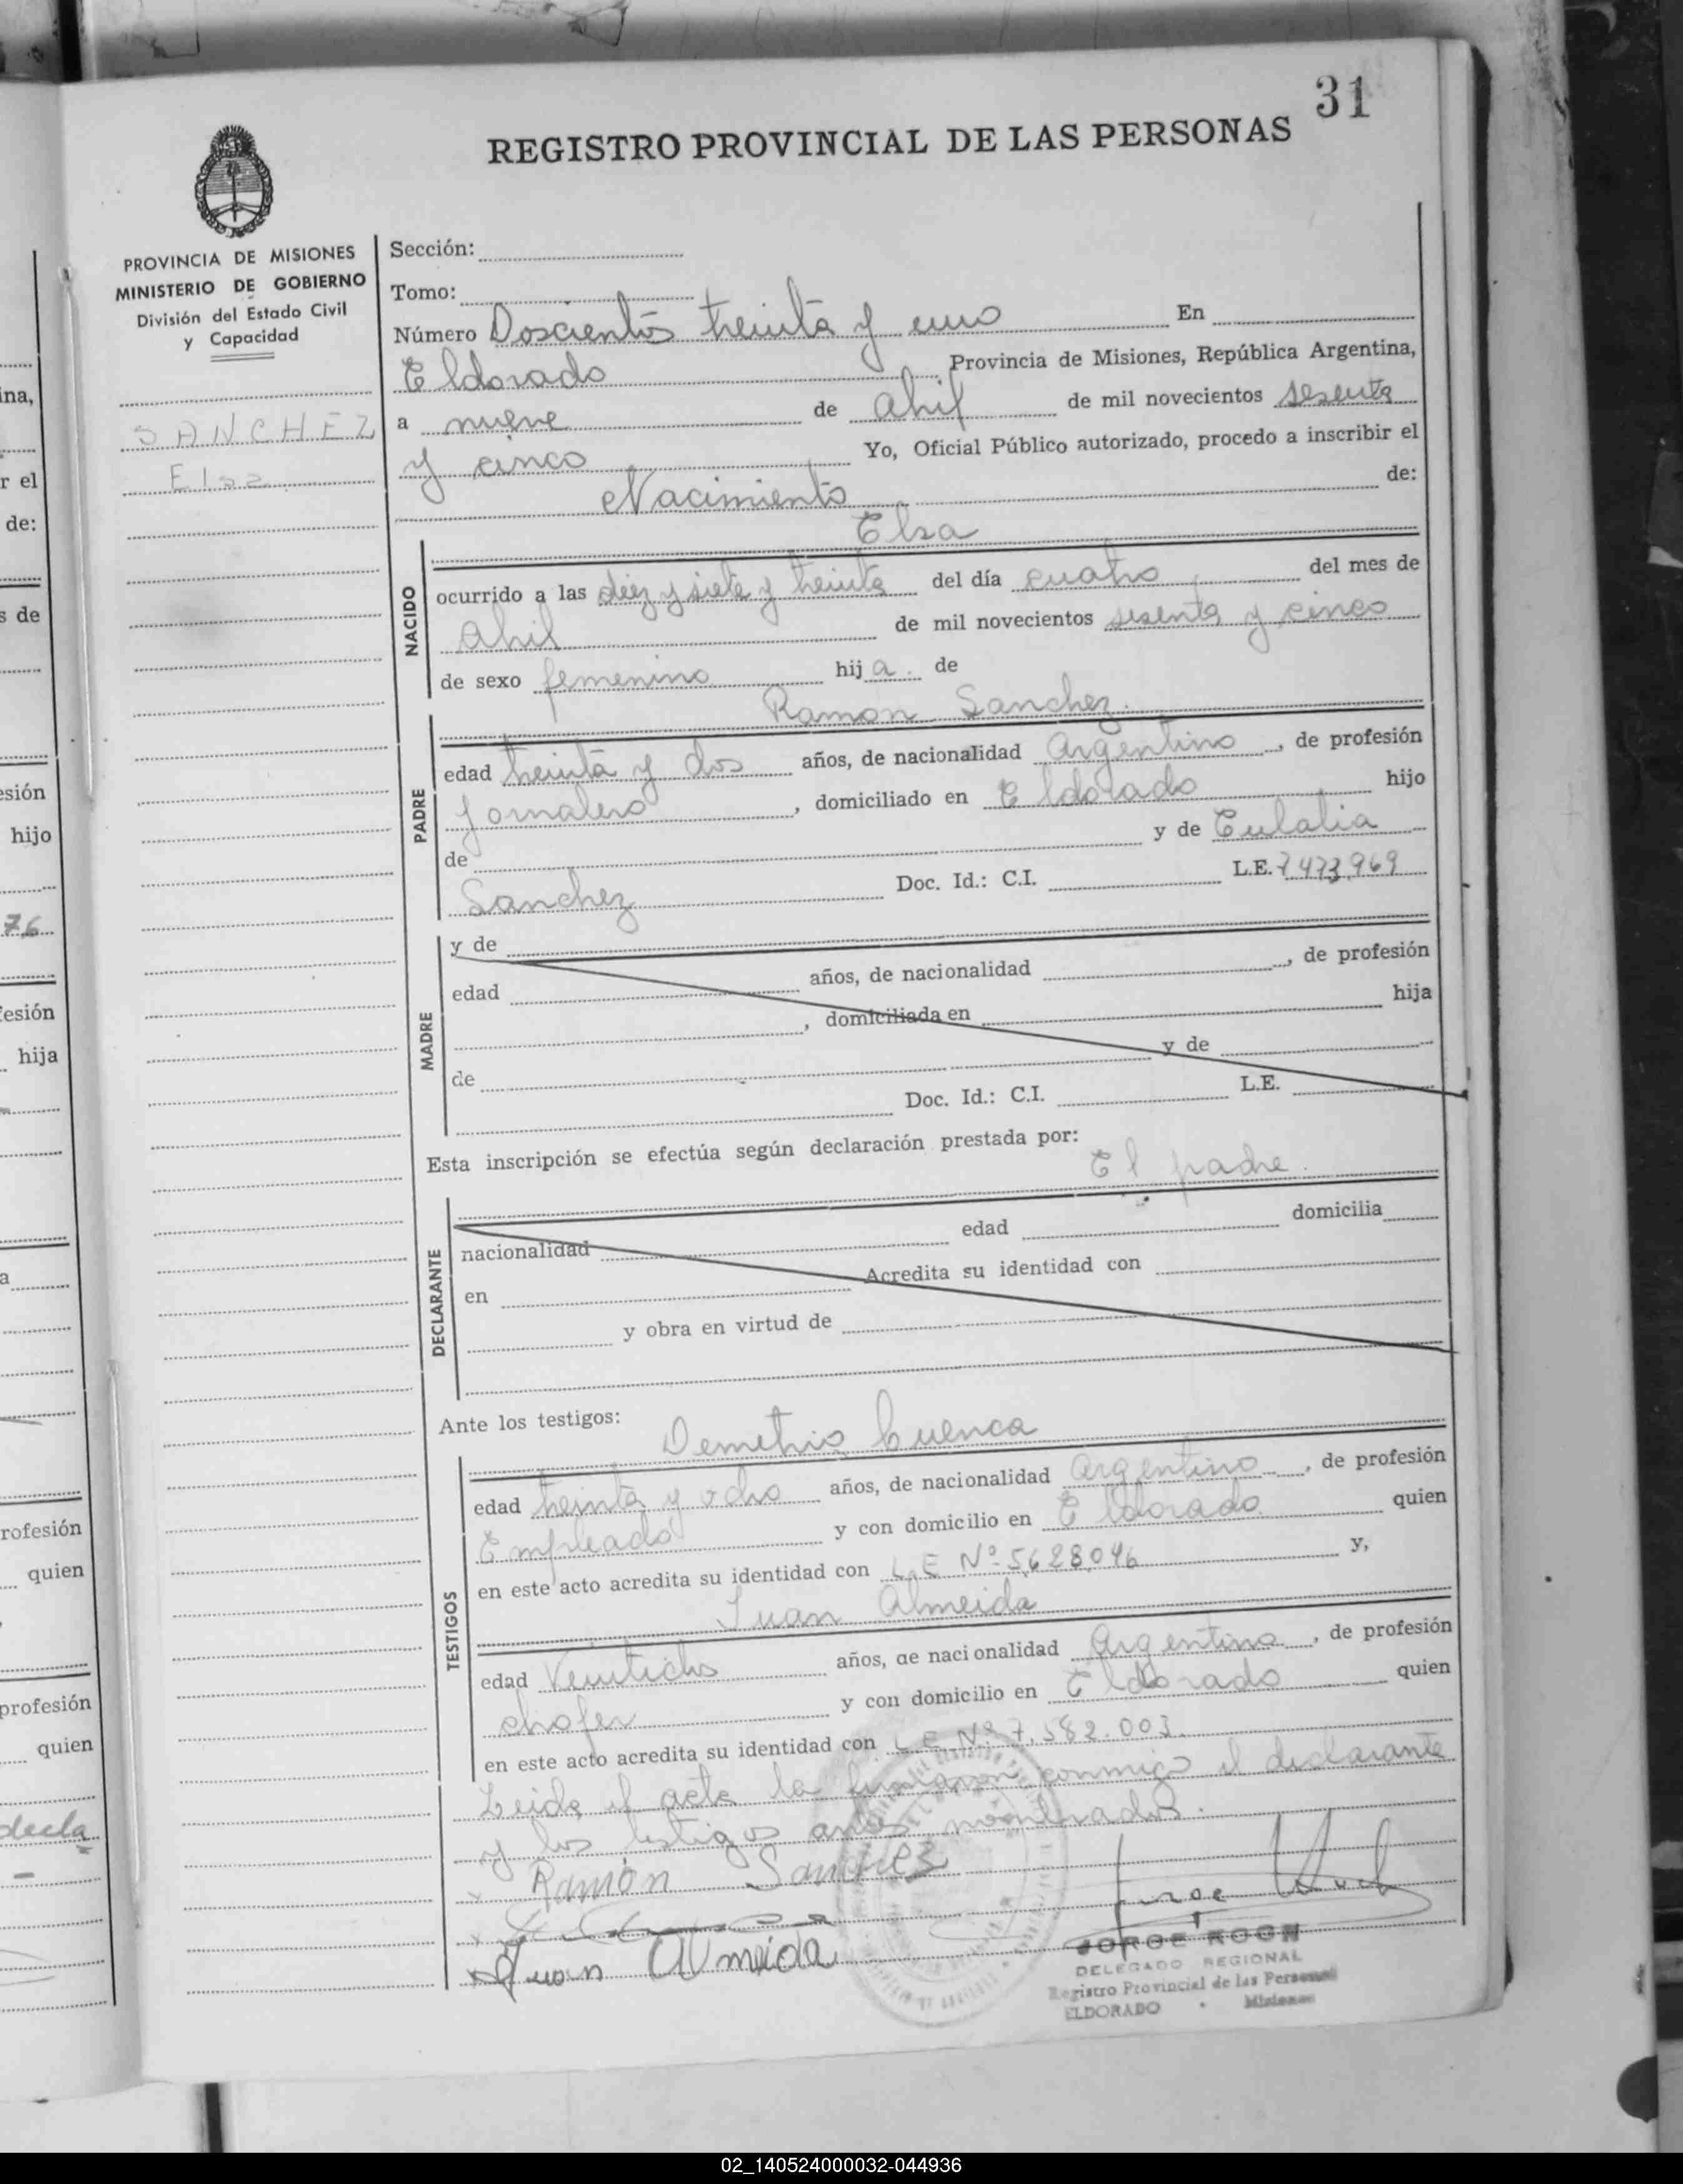 31
REGISTRO PROVINCIAL DE LAS PERSONAS
PROVINCIA DE MISIONES
MINISTERIO DE GOBIERNO
División del Estado Civil
y Capacidad
SANCHEZ
Elsa
Sección:
Tomo:
Número Doscientos treinta y uno En
Eldorado Provincia de Misiones, República Argentina,
a nueve de abril de mil novecientos sesenta
y cinco Yo, Oficial Público autorizado, procedo a inscribir el
Nacimiento de:
Elsa
NACIDO
ocurrido a las diez y siete y treinta del día cuatro del mes de
abril de mil novecientos sesenta y cinco
de sexo femenino hija. de
Ramon Sanchez.
PADRE
edad treinta y dos años, de nacionalidad Argentino, de profesión
Jornalero, domiciliado en Eldorado hijo
de y de Eulalia
Sanchez Doc. Id.: C.I. L.E. 7473969
MADRE
y de
edad años, de nacionalidad , de profesión
, domiciliada en hija
de y de
Doc. Id.: C.I. L.E.
Esta inscripción se efectúa según declaración prestada por:
El padre.
DECLARANTE
nacionalidad edad domicilia
en Acredita su identidad con
y obra en virtud de
Ante los testigos:
Demetrio Cuenca
TESTIGOS
edad treinta y ocho años, de nacionalidad argentino, de profesión
Empleado y con domicilio en Eldorado quien
en este acto acredita su identidad con L.E Nº 5628046 y,
Juan Almeida
edad Veintiocho años, de nacionalidad Argentino, de profesión
chofer y con domicilio en Eldorado quien
en este acto acredita su identidad con L E Nº 7.582.003.
Leida el acta la firmaron conmigo el declarante
y los testigos antes nombrados.
x Ramón Sanchez
x
x Juan Almeida
JORGE ROON
DELEGADO REGIONAL
Registro Provincial de las Personas
ELDORADO - Misiones
ina,
r el
de:
s de
esión
hijo
76
fesión
hija
a
rofesión
quien
profesión
quien
decla
02_140524000032-044936